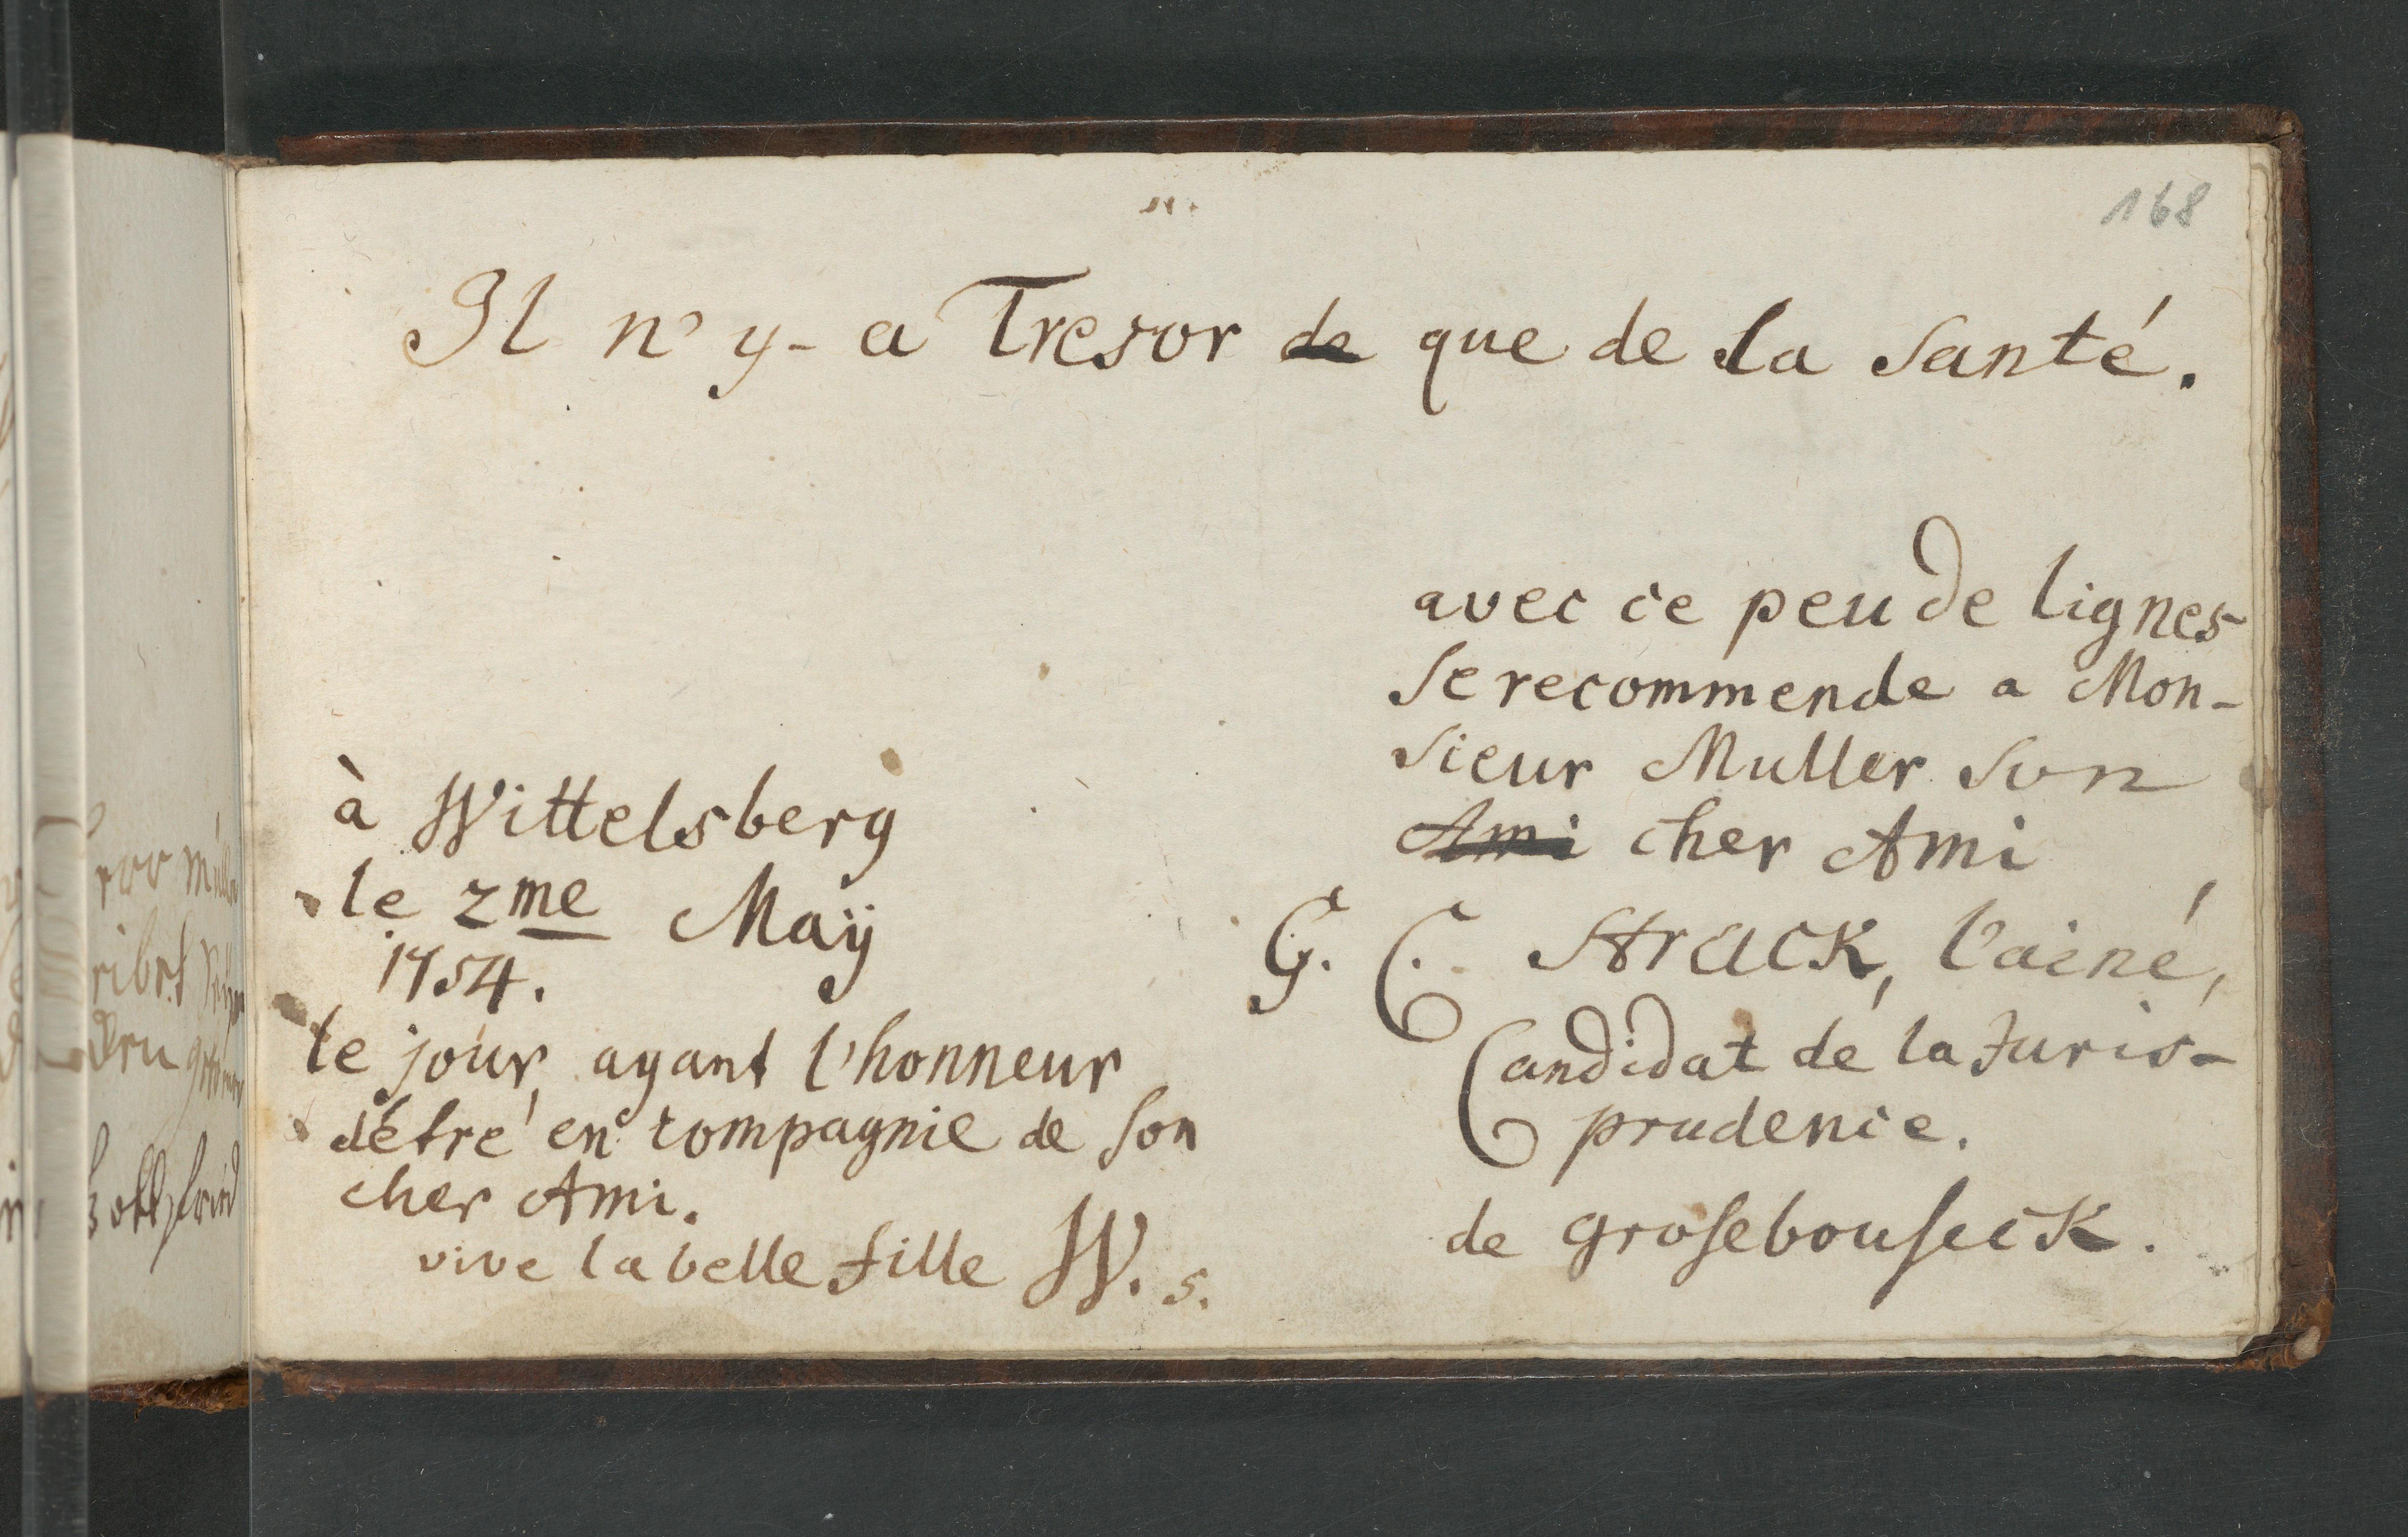 168
Il n'y-a Tresor de que de la Santé.
avec ce peu de lignes
se recommende a Mon-
sieur Muller son
Ami cher Ami
G. C. Strack, l'ainé,
Candidat de la Juris-
prudence.
de grosebouseck.
à Wittelsberg
le 2me Maÿ
1754.
le jour, ayant l'honneur
d'étre en compagnie de son
cher Ami.
vive la belle fille W. s.